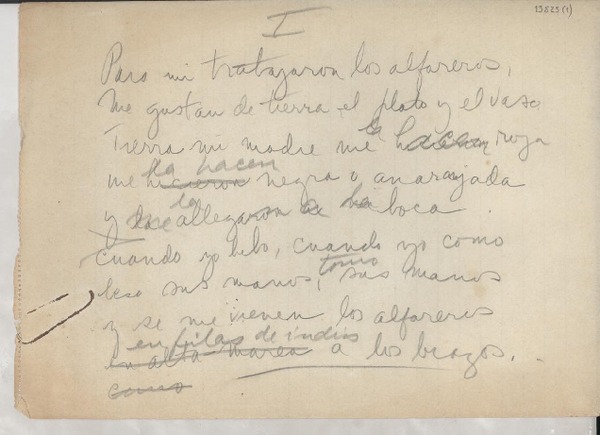 15825(1)
I
Para mi trabajaron los alfareros,
Me gustan de tierra el plato y el vaso
Tierra mi madre me la hacen roja
me la hacen negra o anarajada
y la allegaron a la boca.
Cuando yo bebo, cuando yo como
beso sus manos, tomo sus manos
y se me vienen los alfareros
en filas de indios
en alta marea a los brazos.
como